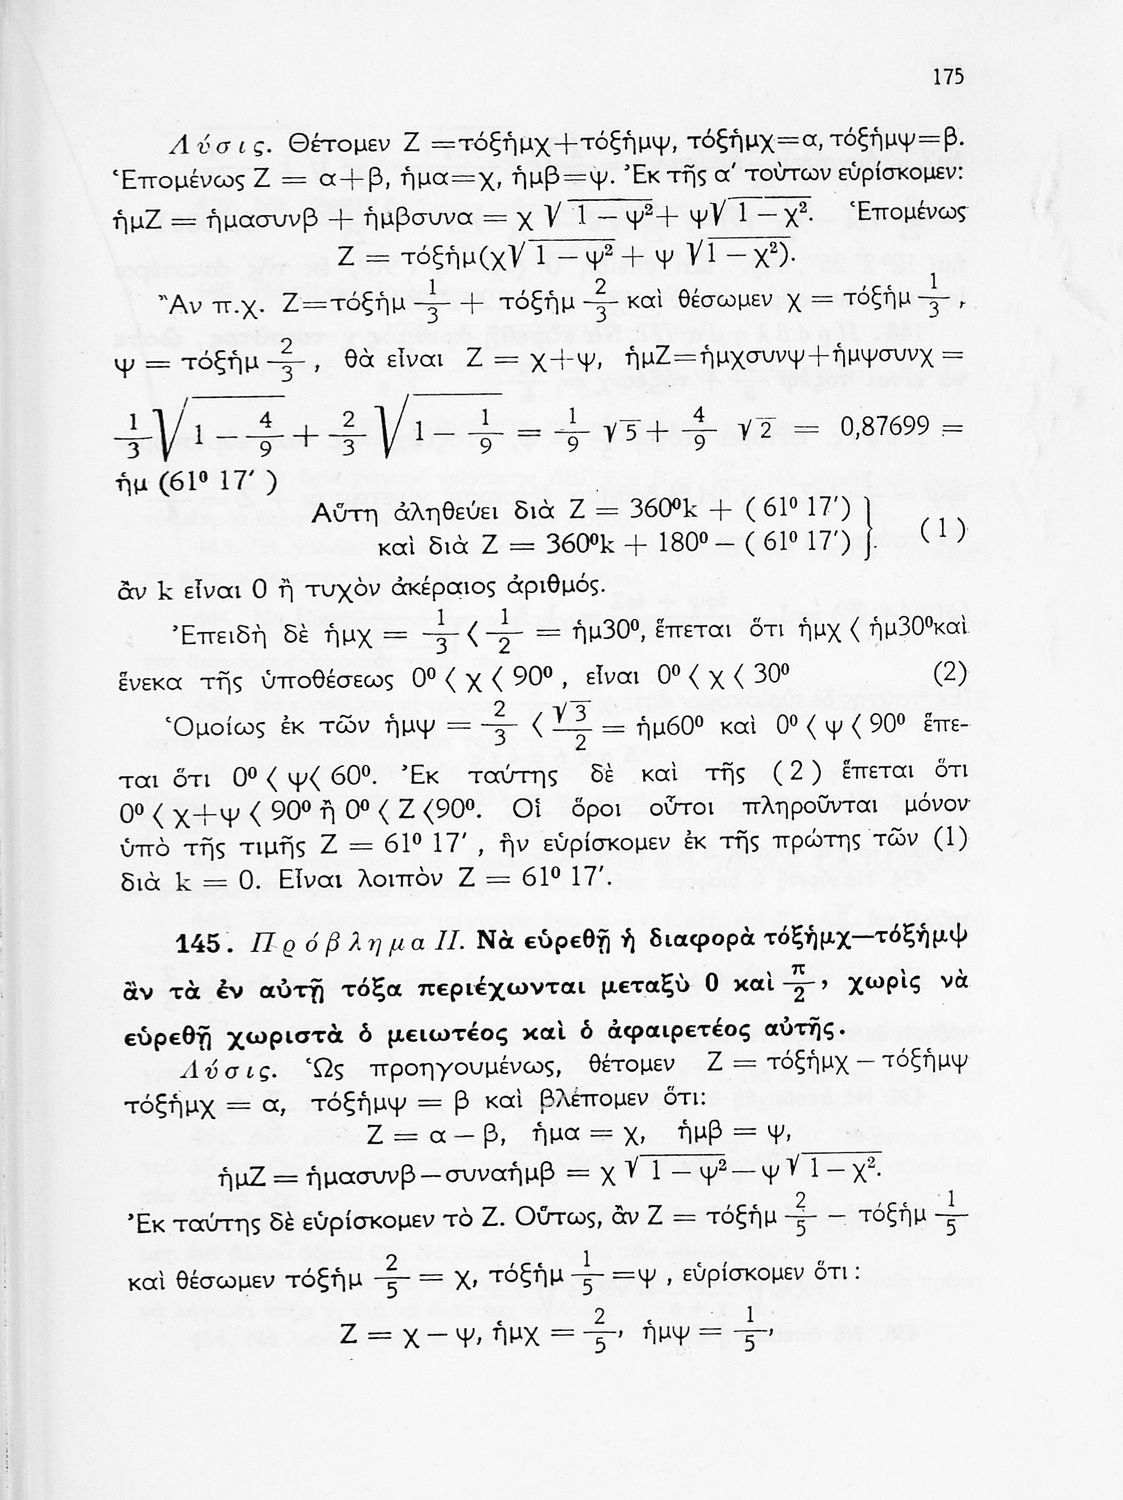 175
Λύσις. Θέτομεν Ζ =τόξἡμχ+τόξἡμψ, τόξἡμχ=α, τόξἡμψ=β.
Ἑπομένως Ζ = α+β, ἡμα=χ, ἡμβ=ψ. Ἐκ τῆς α′ τούτων εὑρίσκομεν:
ἡμΖ = ἡμασυνβ + ἡμβσυνα = χ √1 − ψ² + ψ√1 − χ². Ἑπομένως
Ζ = τόξἡμ(χ√1 − ψ² + ψ √1 − χ²).
Ἂν π.χ. Ζ=τόξἡμ 1/3 + τόξἡμ 2/3 καὶ θέσωμεν χ = τόξἡμ 1/3 ,
ψ = τόξἡμ 2/3 , θὰ εἶναι Ζ = χ+ψ, ἡμΖ=ἡμχσυνψ+ἡμψσυνχ =
1/3 √1 − 4/9 + 2/3 √1 − 1/9 = 1/9 √5 + 4/9 √2 = 0,87699 =
ἡμ (61⁰ 17′ )
Αὕτη ἀληθεύει διὰ Ζ = 360⁰k + ( 61⁰ 17′)
καὶ διὰ Ζ = 360⁰k + 180⁰ − ( 61⁰ 17′) } . (1)
ἂν k εἶναι 0 ἢ τυχὸν ἀκέραιος ἀριθμός.
Ἐπειδὴ δὲ ἡμχ = 1/3 < 1/2 = ἡμ30⁰, ἕπεται ὅτι ἡμχ < ἡμ30⁰καὶ
ἕνεκα τῆς ὑποθέσεως 0⁰ < χ < 90⁰ , εἶναι 0⁰ < χ < 30⁰ (2)
Ὁμοίως ἐκ τῶν ἡμψ = 2/3 < √3/2 = ἡμ60⁰ καὶ 0⁰ < ψ < 90⁰ ἕπε-
ται ὅτι 0⁰ < ψ< 60⁰. Ἐκ ταύτης δὲ καὶ τῆς ( 2 ) ἕπεται ὅτι
0⁰ < χ+ψ < 90⁰ ἢ 0⁰ < Ζ <90⁰. Οἱ ὅροι οὗτοι πληροῦνται μόνον
ὑπὸ τῆς τιμῆς Ζ = 61⁰ 17′ , ἣν εὑρίσκομεν ἐκ τῆς πρώτης τῶν (1)
διὰ k = 0. Εἶναι λοιπὸν Ζ = 61⁰ 17′.
145. Πρόβλημα II. Νὰ εὑρεθῇ ἡ διαφορὰ τόξἡμχ—τόξἡμψ
ἂν τὰ ἐν αὐτῇ τόξα περιέχωνται μεταξὺ 0 καὶ π/2, χωρὶς νὰ
εὑρεθῇ χωριστὰ ὁ μειωτέος καὶ ὁ ἀφαιρετέος αὐτῆς.
Λύσις. Ὡς προηγουμένως, θέτομεν Ζ = τόξἡμχ − τόξἡμψ
τόξἡμχ = α, τόξἡμψ = β καὶ βλέπομεν ὅτι:
Ζ = α − β, ἡμα = χ, ἡμβ = ψ,
ἡμΖ = ἡμασυνβ−συναἡμβ = χ √1 − ψ² − ψ √1 − χ².
Ἐκ ταύτης δὲ εὑρίσκομεν τὸ Ζ. Οὕτως, ἂν Ζ = τόξἡμ 2/5 − τόξἡμ 1/5
καὶ θέσωμεν τόξἡμ 2/5 = χ, τόξἡμ 1/5 =ψ , εὑρίσκομεν ὅτι :
Ζ = χ − ψ, ἡμχ = 2/5, ἡμψ = 1/5,